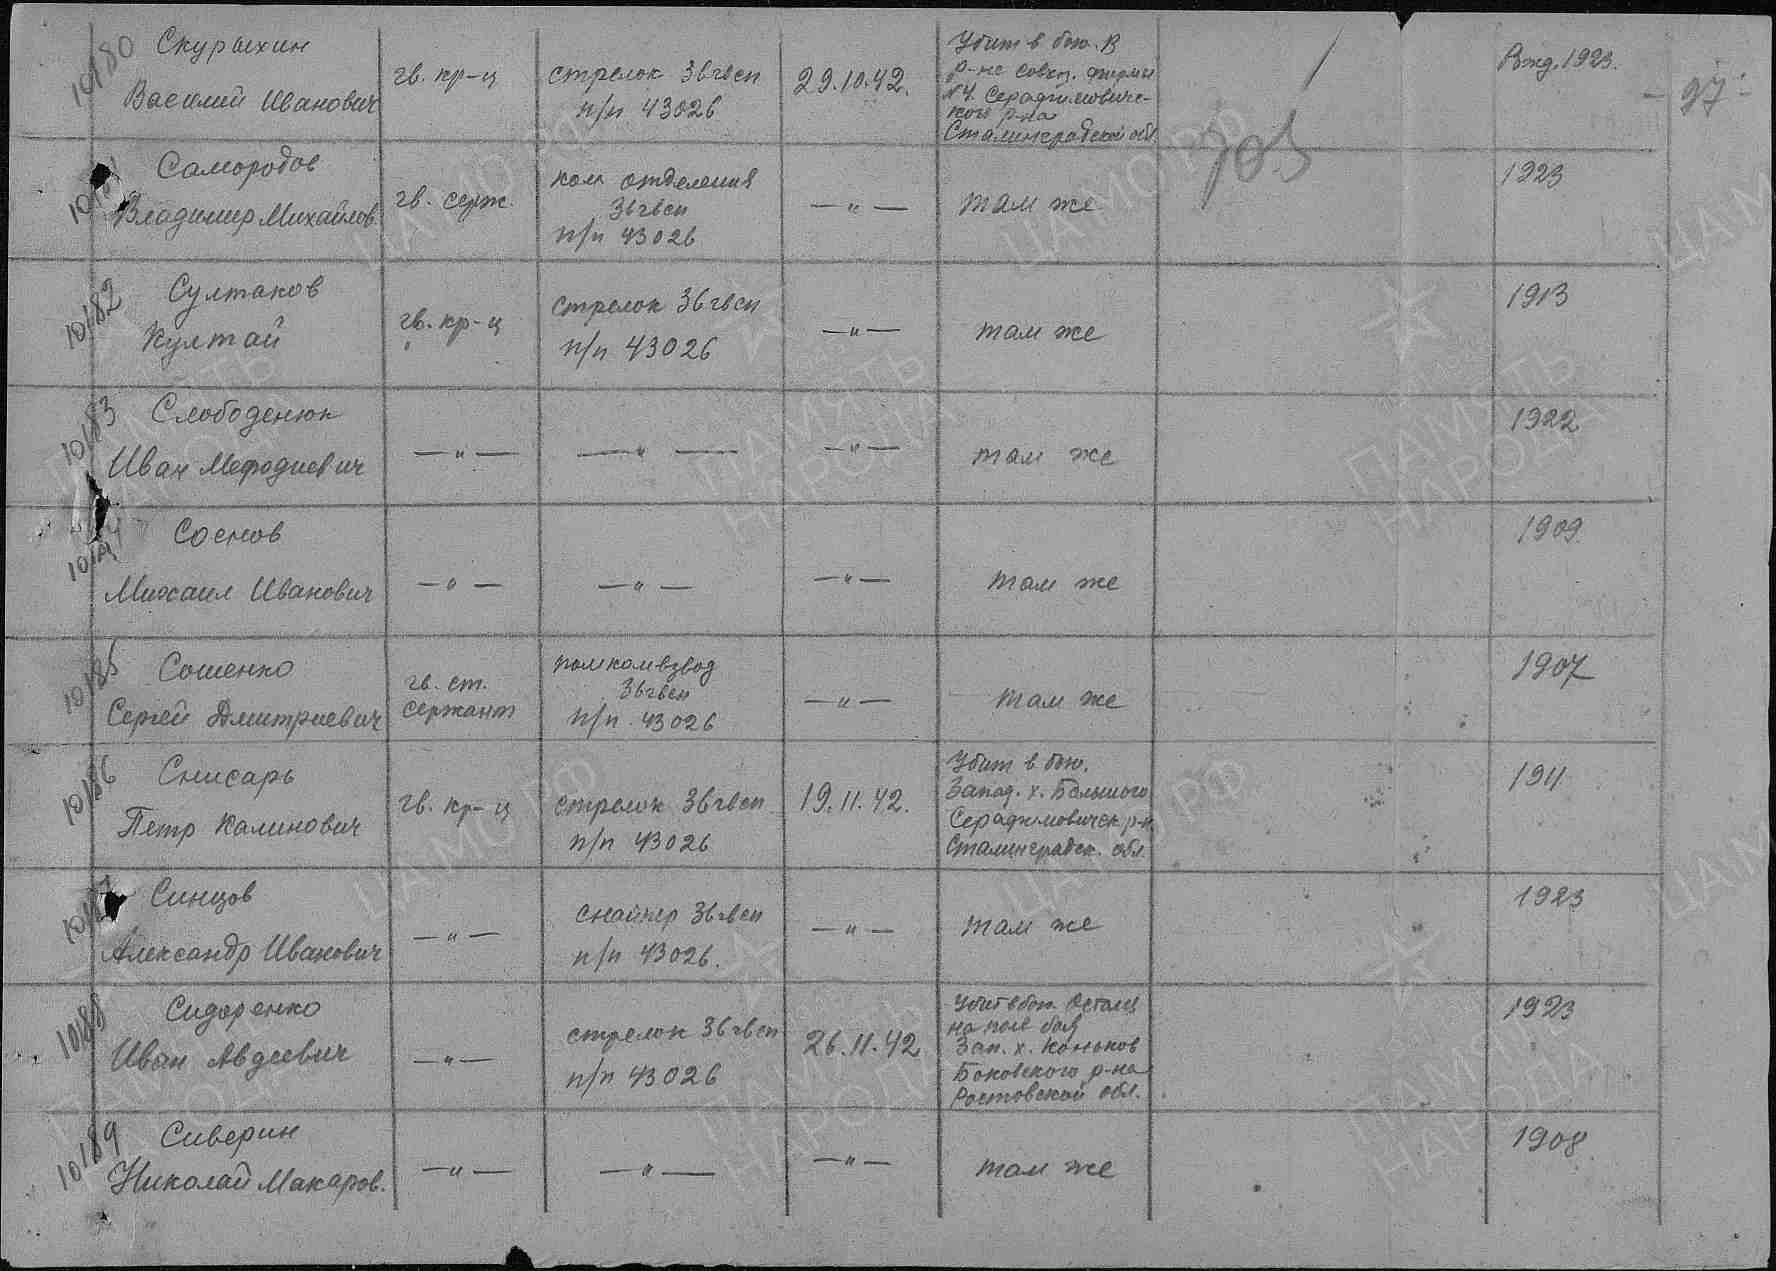 10180
Скурыхин
Василий Иванович
гв. кр-ц
стрелок 36гвсп
п/п 43026
29.10.42.
Убит в бою. В
р-не совхз. фермы
№4. Серафимовиче-
кого р-на
Сталинградской обл
Рожд. 1923.
- 97 -
703
Самородов
Владимир Михайлов.
гв. серж.
ком отделения
36гвсп
п/п 43026
—"—
там же
1923
10182
Султаков
Култай
гв. кр-ц
стрелок 36гвсп
п/п 43026
—"—
там же
1913
10183
Слободенюк
Иван Мефодиевич
—"—
—"—
—"—
там же
1922
Соснов
Михаил Иванович
—"—
—"—
—"—
там же
1909
10185
Сошенко
Сергей Дмитриевич
гв. ст.
сержант
помкомвзвод
36гвсп
п/п 43026
—"—
там же
1907
10186
Снисарь
Петр Калинович
гв. кр-ц
стрелок 36гвсп
п/п 43026
19.11.42.
Убит в бою.
Запад. х. Большого
Серафимовическ р-н
Сталинградск. обл.
1911
Синцов
Александр Иванович
—"—
снайпер 36гвсп
п/п 43026.
—"—
там же
1923
10188
Сидоренко
Иван Авдеевич
—"—
стрелок 36гвсп
п/п 43026
26.11.42
Убит в бою. Остался
на поле боя
Зап. х. Коньков
Боковского р-на
Ростовской обл.
1923
10189
Сиверин
Николай Макаров.
—"—
—"—
—"—
там же
1908
ЦАМО РФ
ПАМЯТЬ
НАРОДА